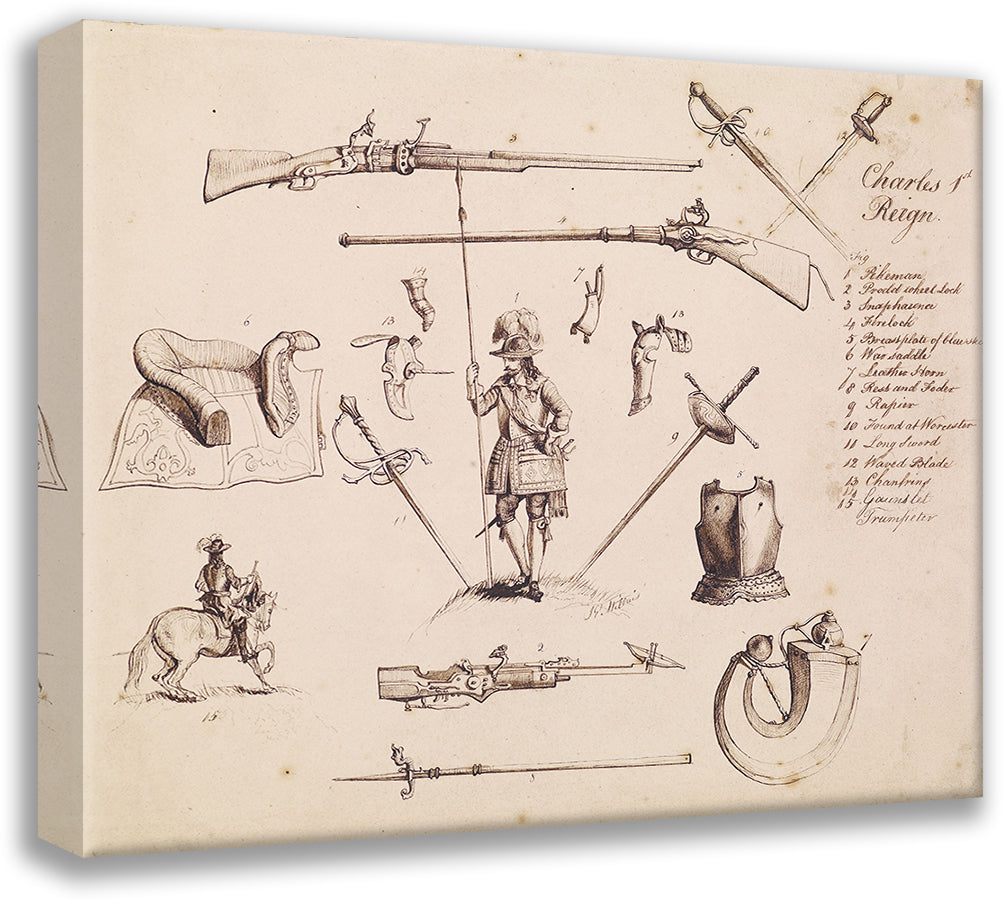 Charles 1st
Reign.
Fig
1 Pikeman
2 Prodd wheel Lock
3 Snaphaunce
4 Firelock
5 Breastplate of
6 War saddle
7 Leather Horn
8 Rest and Foder
9 Rapier
10 Found at Worcester
11 Long Sword
12 Waved Blade
13 Chanfrins
14 Gauntlet
15 Trumpeter
3
10
12
4
14
7
1
13
13
6
9
11
5
15
2
8